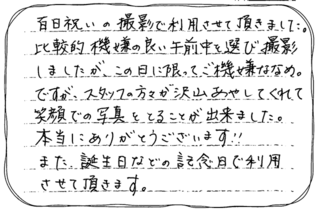 百日祝いの撮影で利用させて頂きました。
比較的機嫌の良い午前中を選び撮影
しましたが、この日に限ってご機嫌ななめ。
ですが、スタッフの方々が沢山あやしてくれて
笑顔での写真をとることが出来ました。
本当にありがとうございます!!
また、誕生日などの記念日で利用
させて頂きます。